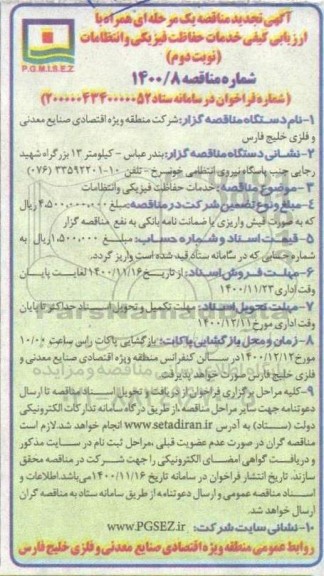 آگهی تجدید مناقصه یک مرحله ای همراه با
ارزیابی کیفی خدمات حفاظت فیزیکی و انتظامات
(نوبت دوم)
P.G.M.I.S.E.Z
شماره مناقصه ۱۴۰۰/۸
(شماره فراخوان در سامانه ستاد ۲۰۰۰۰۰۴۳۴۰۰۰۰۰۵۲)
۱-نام دستگاه مناقصه گزار: شرکت منطقه ویژه اقتصادی صنایع معدنی
و فلزی خلیج فارس
۲-نشانی دستگاه مناقصه گزار: بندر عباس - کیلومتر ۱۳ بزرگراه شهید
رجایی جنب پاسگاه نیروی انتظامی خونسرخ - تلفن ۱۰-۳۳۵۹۲۲۰۱ (۰۷۶)
۳-موضوع مناقصه: خدمات حفاظت فیزیکی وانتظامات
۴-مبلغ ونوع تضمین شرکت در مناقصه: مبلغ ۴،۵۰۰،۰۰۰،۰۰۰ ریال
که به صورت فیش واریزی یا ضمانت نامه بانکی به نفع مناقصه گزار
۵-قیمت اسناد و شماره حساب: مبلغ ۱،۵۰۰،۰۰۰ ریال به
شماره حسابی که در سامانه ستاد قید شده است واریز گردد.
۶-مهلت فروش اسناد: از تاریخ ۱۴۰۰/۱۱/۱۶ لغایت پایان
وقت اداری ۱۴۰۰/۱۱/۲۳
۷-مهلت تحویل اسناد: مهلت تکمیل و تحویل اسناد حداکثر تا پایان
وقت اداری مورخ ۱۴۰۰/۱۲/۱۱
۸-زمان و محل بازگشایی پاکات: بازگشایی پاکات راس ساعت ۱۰:۰۰
مورخ ۱۴۰۰/۱۲/۱۲ در سالن کنفرانس منطقه ویژه اقتصادی صنایع معدنی و
فلزی خلیج فارس صورت خواهد پذیرفت.
۹-کلیه مراحل برگزاری فراخوان از دریافت و تحویل اسناد مناقصه تا ارسال
دعوتنامه جهت سایر مراحل مناقصه، از طریق درگاه سامانه تدارکات الکترونیکی
دولت (ستاد) به آدرس www.setadiran.ir انجام خواهد شد. لازم است
مناقصه گران در صورت عدم عضویت قبلی، مراحل ثبت نام در سایت مذکور
و دریافت گواهی امضای الکترونیکی را جهت شرکت در مناقصه محقق
سازند. تاریخ انتشار فراخوان در سامانه تاریخ ۱۴۰۰/۱۱/۱۶ می باشد. اطلاعات و
اسناد مناقصه عمومی و ارسال دعوتنامه از طریق سامانه ستاد به مناقصه گران
ارسال خواهد شد.
۱۰-نشانی سایت شرکت: www.PGSEZ.ir
روابط عمومی منطقه ویژه اقتصادی صنایع معدنی و فلزی خلیج فارس